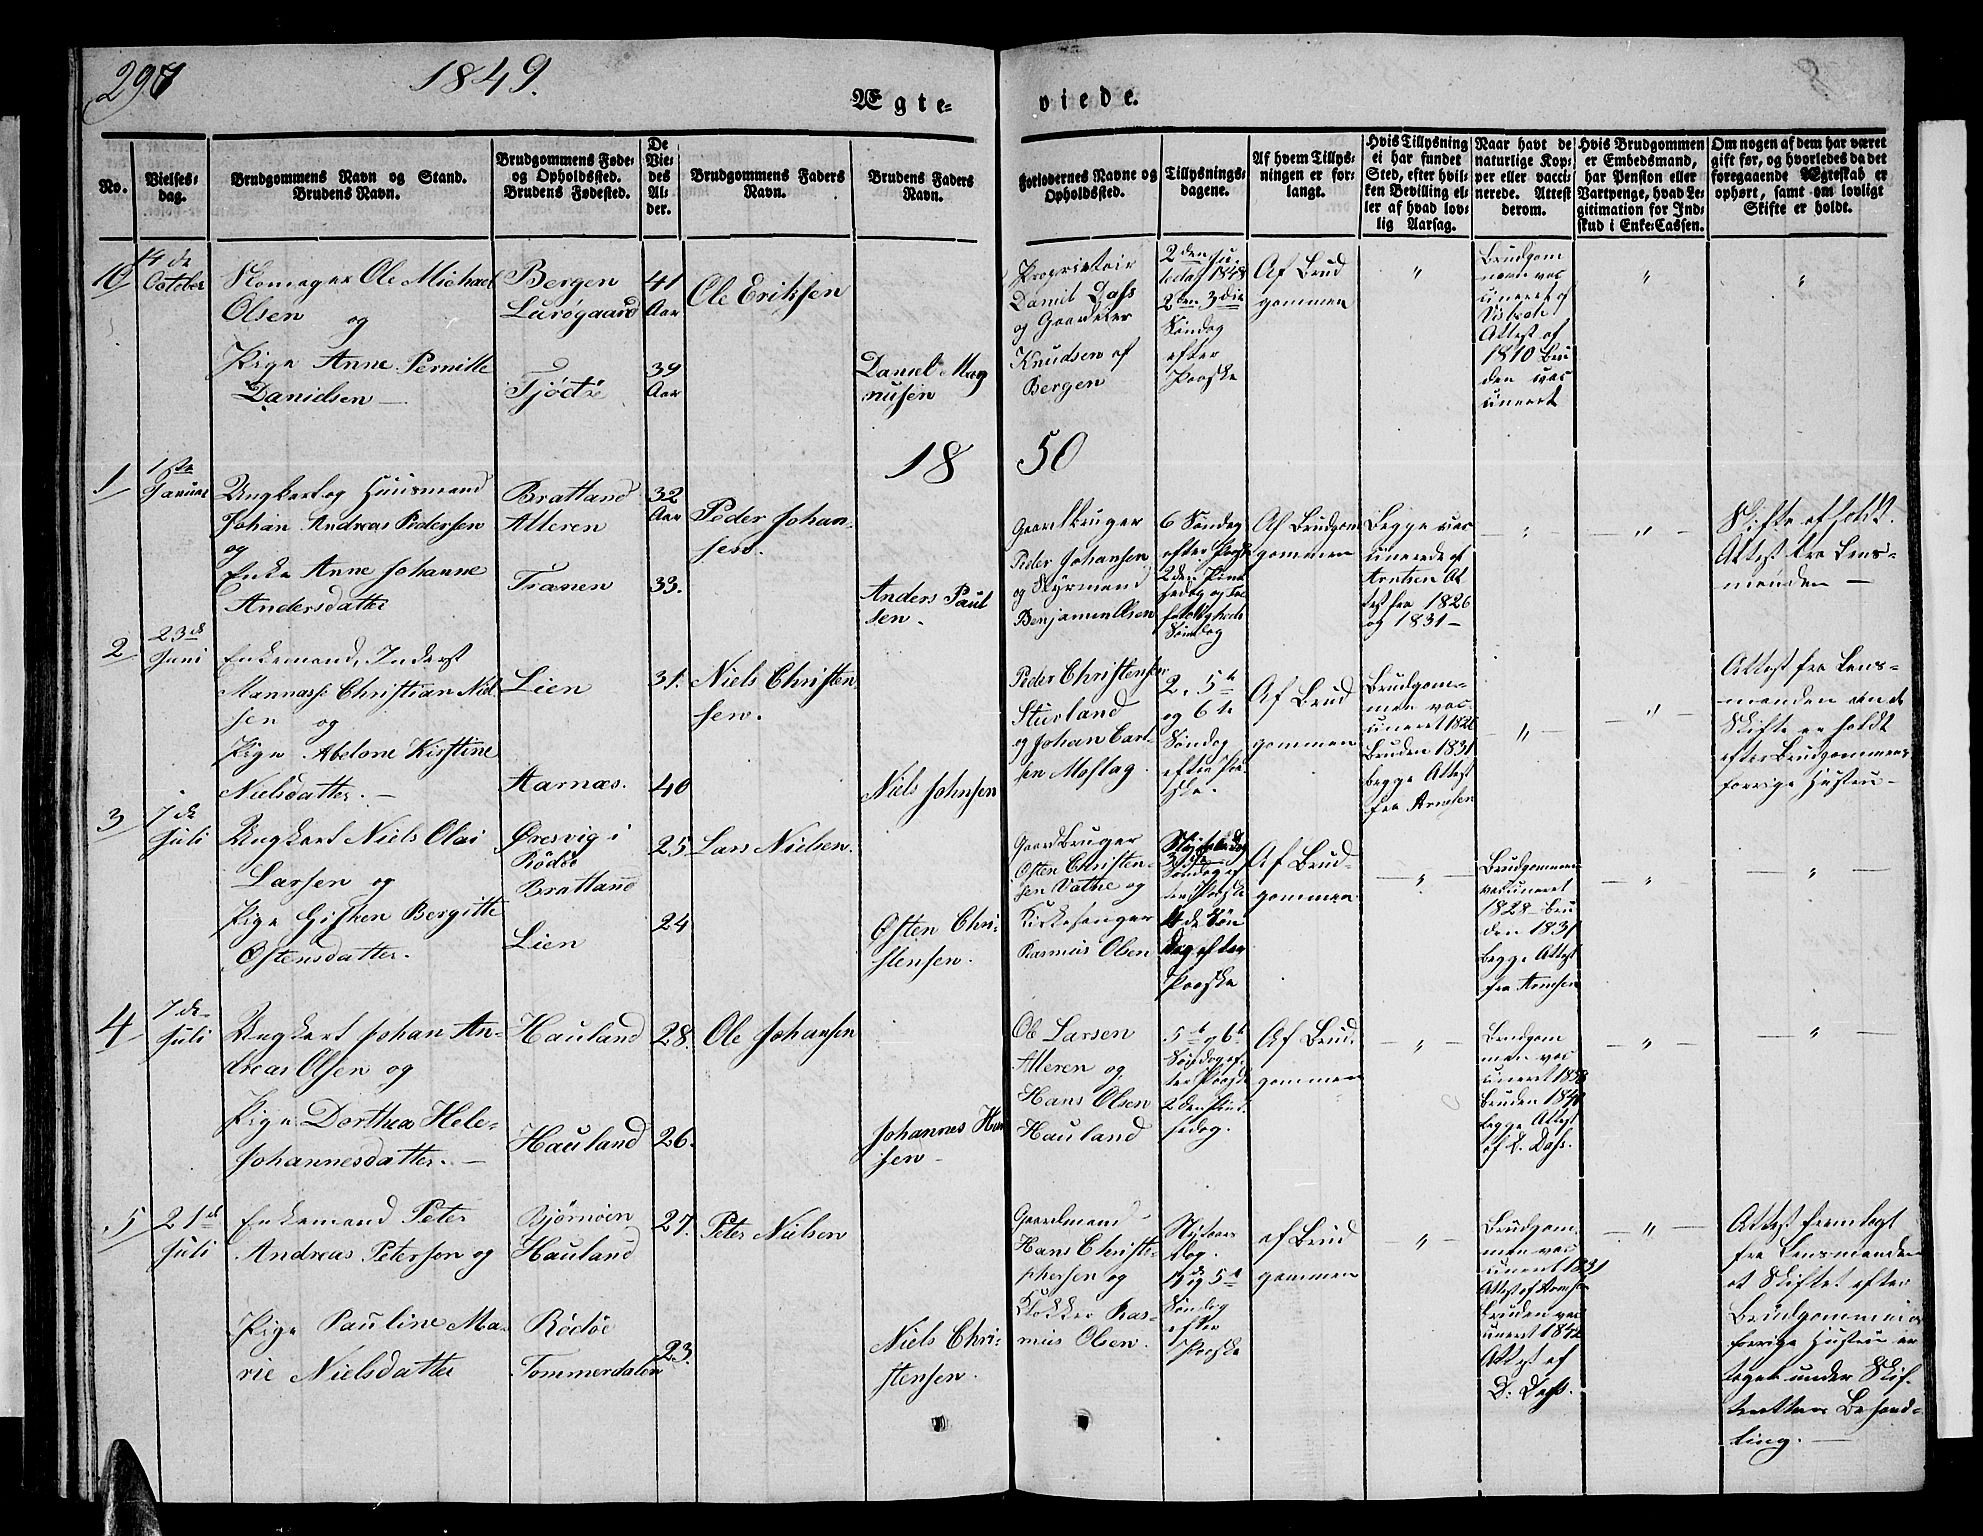 297
1849.
Ægte-
viede.
No.
Vielses-
dag.
Brudgommens Navn og Stand.
Brudens Navn.
Brudgommens Føde-
og Opholdssted.
Brudens Fødested.
De
Vie-
des
Al-
der.
Brudgommens Faders
Navn.
Brudens Faders
Navn.
Forlovernes Navne og
Opholdssted.
Tillysnings-
dagene.
Af hvem Tillys-
ningen er for-
langt.
Hvis Tillysning
ei har fundet
Sted, efter hvil-
ken Bevilling el-
ler af hvad lov-
lig Aarsag.
Naar havt de
naturlige Kop-
per eller vacci-
nerede. Attest
derom.
Hvis Brudgommen
er Embedsmand,
har Pension eller
Vartpenge, hvad Le-
gitimation for Ind-
skud i Enke-Cassen.
Om nogen af dem har været
gift før, og hvorledes da det
foregaaende Ægteskab er
ophørt, samt om lovligt
Skifte er holdt.
10
14 de
October
Skomager Ole Michael
Olsen og
Pige Anne Pernille
Danielsen —
Bergen
Lurøgaard
Tjöttö
41
Aar
39
Aar
Ole Eriksen
Daniel Mag
nusen
Proprietair
Daniel Dass
og Gaardeier
Knudsen af
Bergen
2den Ju-
ledag 1848
2den 3die
Søndag
efter
Paaske
Af Brud
gommen
"
Brudgom
men vac
cineret af
Attest af
1810 Bru
den vac
cineret
"
"
1850
1
1ste
Januar
Ungkarl og Huusmand
Johan Andreas Pedersen
og
Enke Anne Johanne
Andersdatter
Bratland
Alteren
Trænen
32
Aar
33.
Peder Johan-
sen.
Anders Paul
sen.
Gaardbruger
Peder Johansen
og Styrmand
Benjamin Olsen
6 Søndag
efter Paaske
2den Pint
sedag og Tre
foldigheds
Søndag
Af Brudgom
gommen
Begge vac
cinerede af
Arntsen At
test fra 1826
og 1831 —
"
"
Skifte afholdt.
Attest fra Lens-
manden —
2
23de
Juni
Enkemand, Inderst
Mannasse Christian Niel
sen og
Pige Abelone Kirstine
Nielsdatter. —
Lien
Aarnæs.
31.
40
Niels Christen
sen.
Niels Johnsen
Peder Christensen
Stuvland
og Johan Carl-
sen Moflag.
2, 5te
og 6te
Søndag
efter Paa-
ske.
Af Brud
gommen
Brudgom-
men vac
cineret 1826
Bruden 1831
begge Attest
fra Arntsen
"
"
Attest fra Lens-
manden at
Skifte er holdt
efter Brudgommens
forrige Hustru —
3
7de
Juli
Ungkarl Niels Olai
Larsen og
Pige Gisken Bergitte
Østensdatter.
Øresvig i
Rödöe
Bratland
Lien
25
24
Lars Nielsen.
Østen Chri-
stensen.
Gaardbruger
Østen Christen-
sen Vathe og
Kirkesanger
Rasmus Olsen
3die
Søndag ef
ter Paaske
4de Søn
dag efter
Paaske
Af Brud-
gommen
"
Brudgommen
vaccineret
1828 — Bru
den 1831
begge Attest
fra Arntsen
"
"
4
7de
Juli
Ungkarl Johan An-
dreas Olsen og
Pige Dorthea Hele-
Johannesdatter. —
Hauland
Hauland
28.
26.
Ole Johansen
Johannes Han
sen —
Ole Larsen
Alteren og
Hans Olsen
Hauland
5te og 6te
Søndag ef-
ter Paaske
2den Pint-
sedag.
Af Brud.
gommen
"
Brudgom
men vac
cineret 1838
Bruden 1840
begge Attest
af D. Dass.
"
"
5
21de
Juli
Enkemand Peter
Andreas Peterson og
Pige Pauline Ma-
rie Nielsdatter
Bjørnøen
Hauland
Rödöe
Tommerdalen
27.
23.
Peter Nielsen
Niels Chri-
stensen.
Gaardmand
Hans Christo-
phersen og
Klokker Ras-
mus Olsen.
dag.
5te
Søndag
efter
Paaske
af Brud
gommen
"
Brudgom-
men vac
cineret 1831
Attest af Arntsen
Bruden vac
cineret 1842
Attest af
D. Dass.
"
Attest fremlagt
fra Lensmanden
at Skiftet efter
Brudgommens
forrige Hustru er
taget under Skif-
terettens Behand-
ling. —